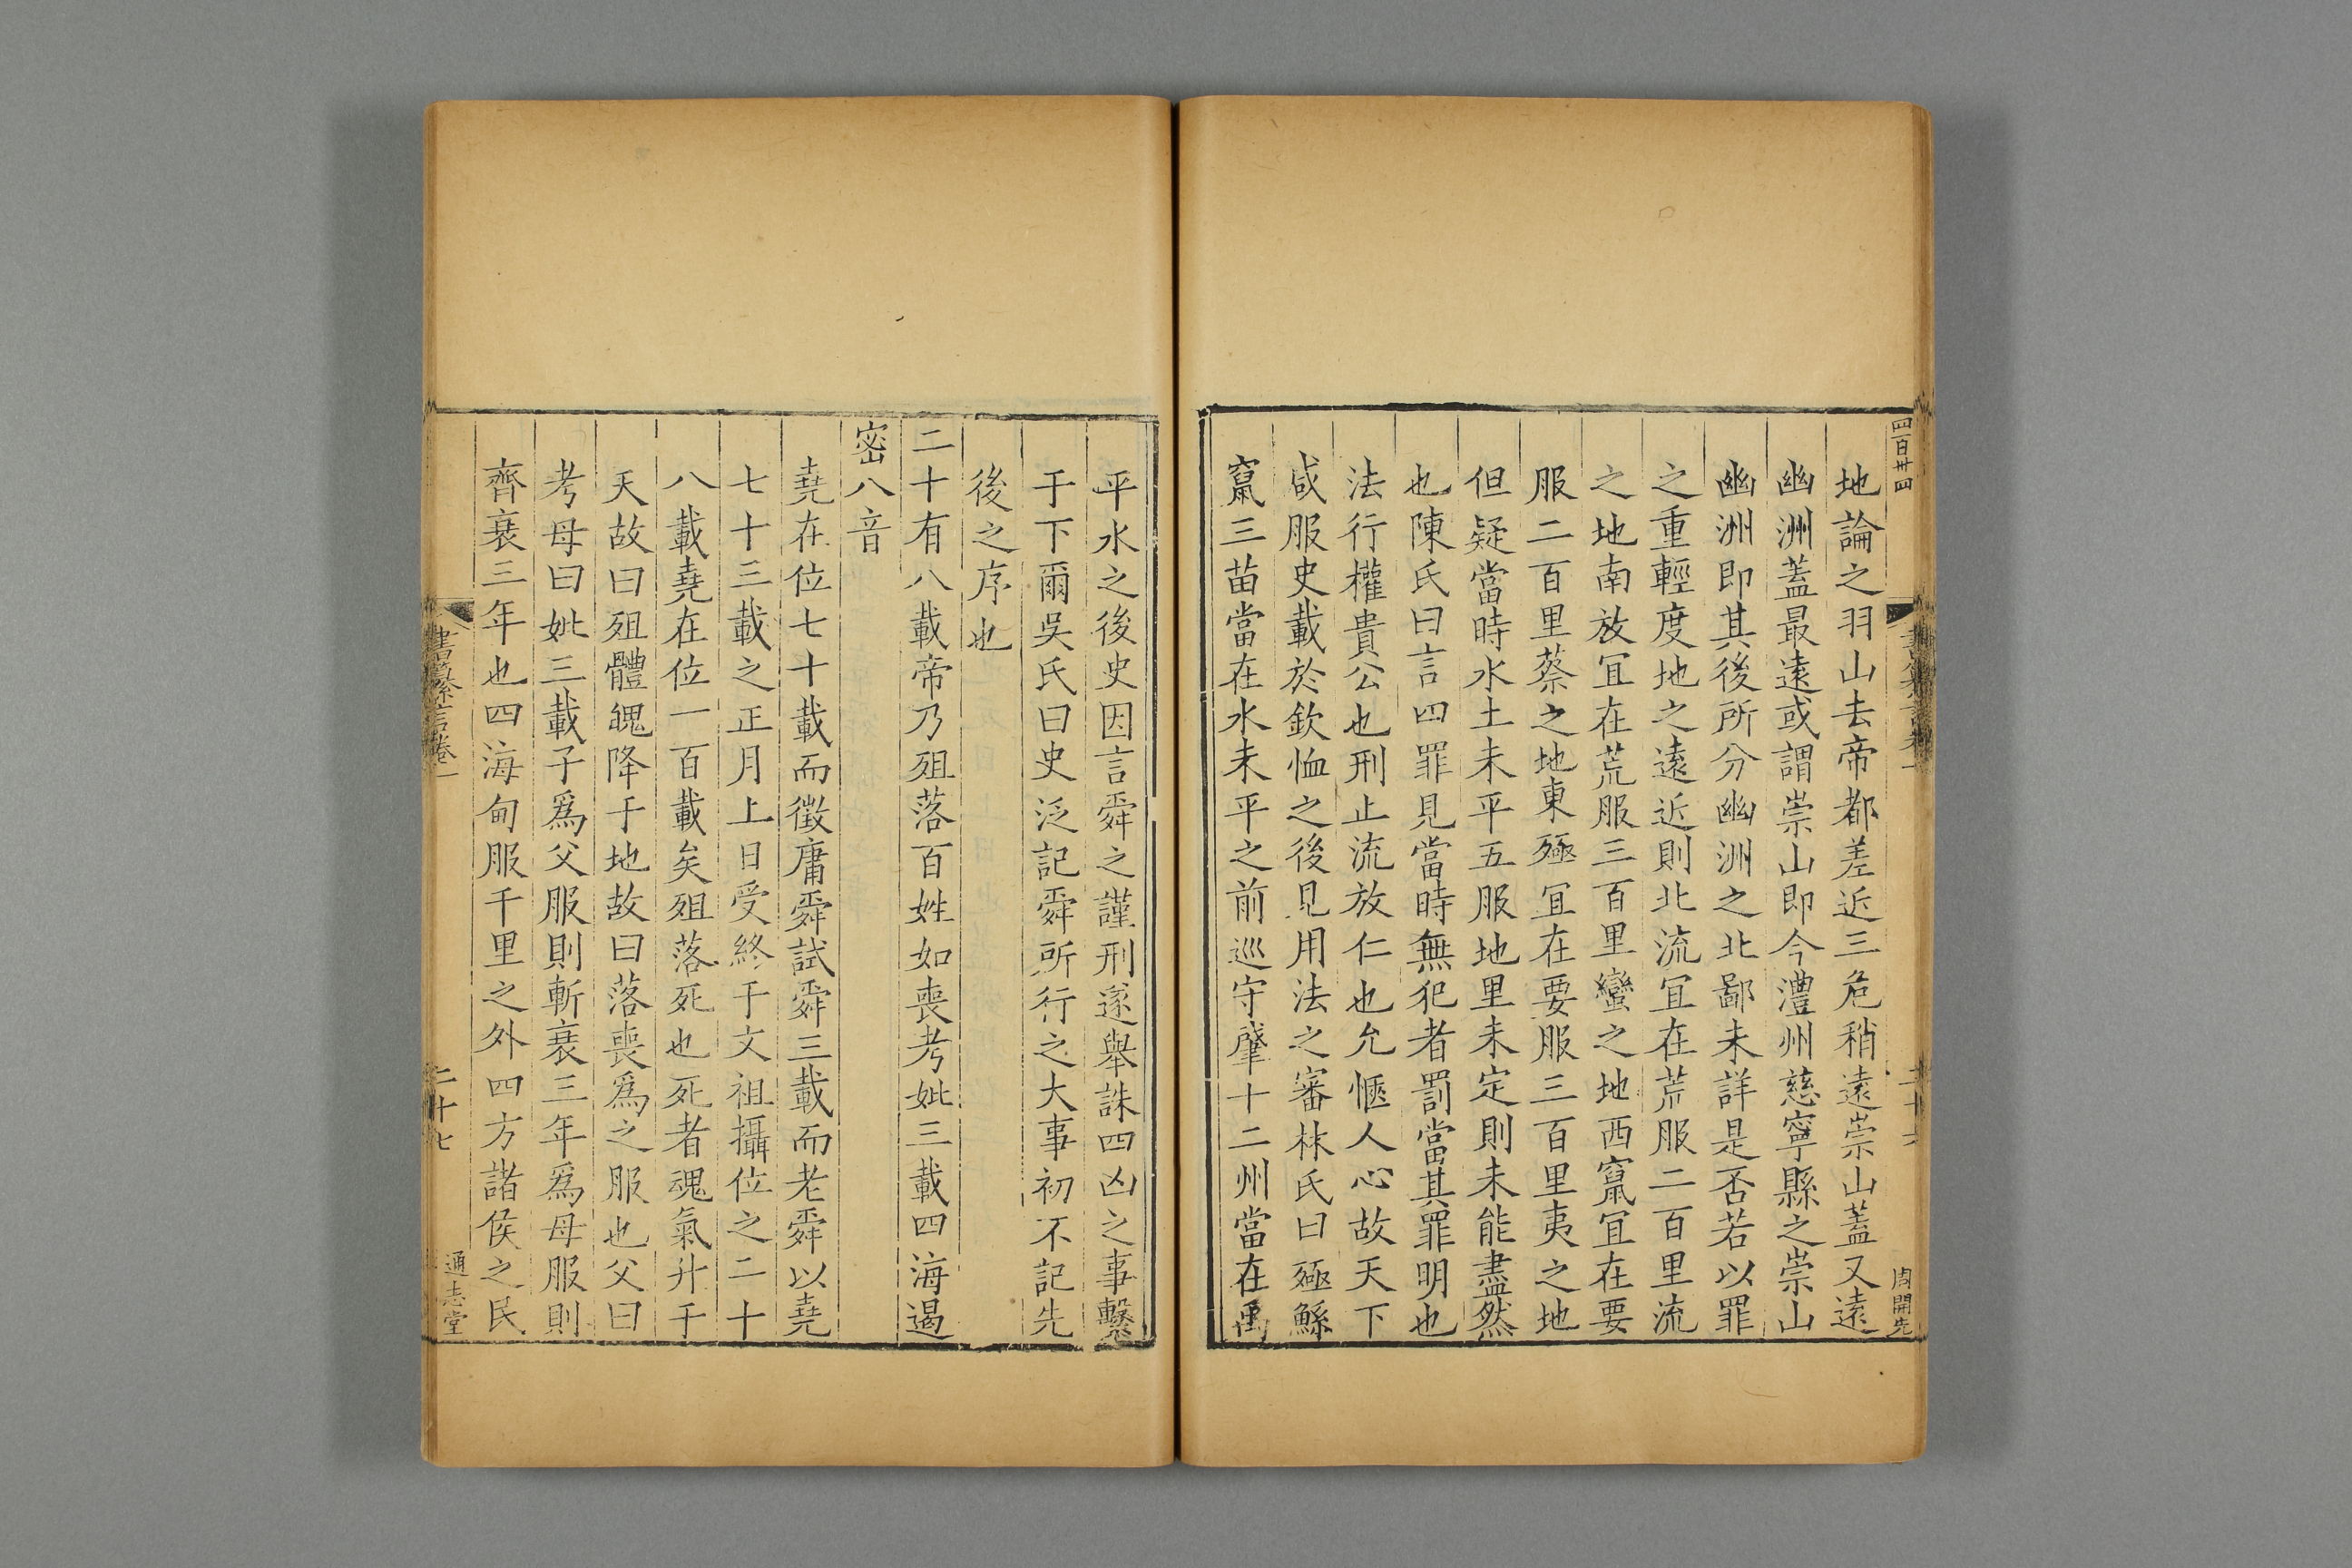 四百卅四
地論之羽山去帝都差近三危稍遠崇山蓋又遠
幽洲蓋最遠或謂崇山即今澧州慈寧縣之崇山
幽洲即其後所分幽洲之北鄙未詳是否若以罪
之重輕度地之遠近則北流冝在荒服二百里流
之地南放冝在荒服三百里蠻之地西竄冝在要
服二百里蔡之地東殛冝在要服三百里夷之地
但疑當時水土未平五服地里未定則未能盡然
也陳氏曰言四罪見當時無犯者罰當其罪明也
法行權貴公也刑止流放仁也允愜人心故天下
咸服史載於欽恤之後見用法之審林氏曰殛鯀
竄三苗當在水未平之前巡守肇十二州當在禹
周開先
平水之後史因言舜之謹刑遂舉誅四凶之事繫
于下爾吳氏曰史泛記舜所行之大事初不記先
後之序也
二十有八載帝乃殂落百姓如喪考妣三載四海遏
密八音
堯在位七十載而徵庸舜試舜三載而老舜以堯
七十三載之正月上日受終于文祖攝位之二十
八載堯在位一百載矣殂落死也死者魂氣升于
天故曰殂體魄降于地故曰落喪爲之服也父曰
考母曰妣三載子爲父服則斬衰三年爲母服則
齊衰三年也四海甸服千里之外四方諸侯之民
書纂言卷一
二十七
通志堂